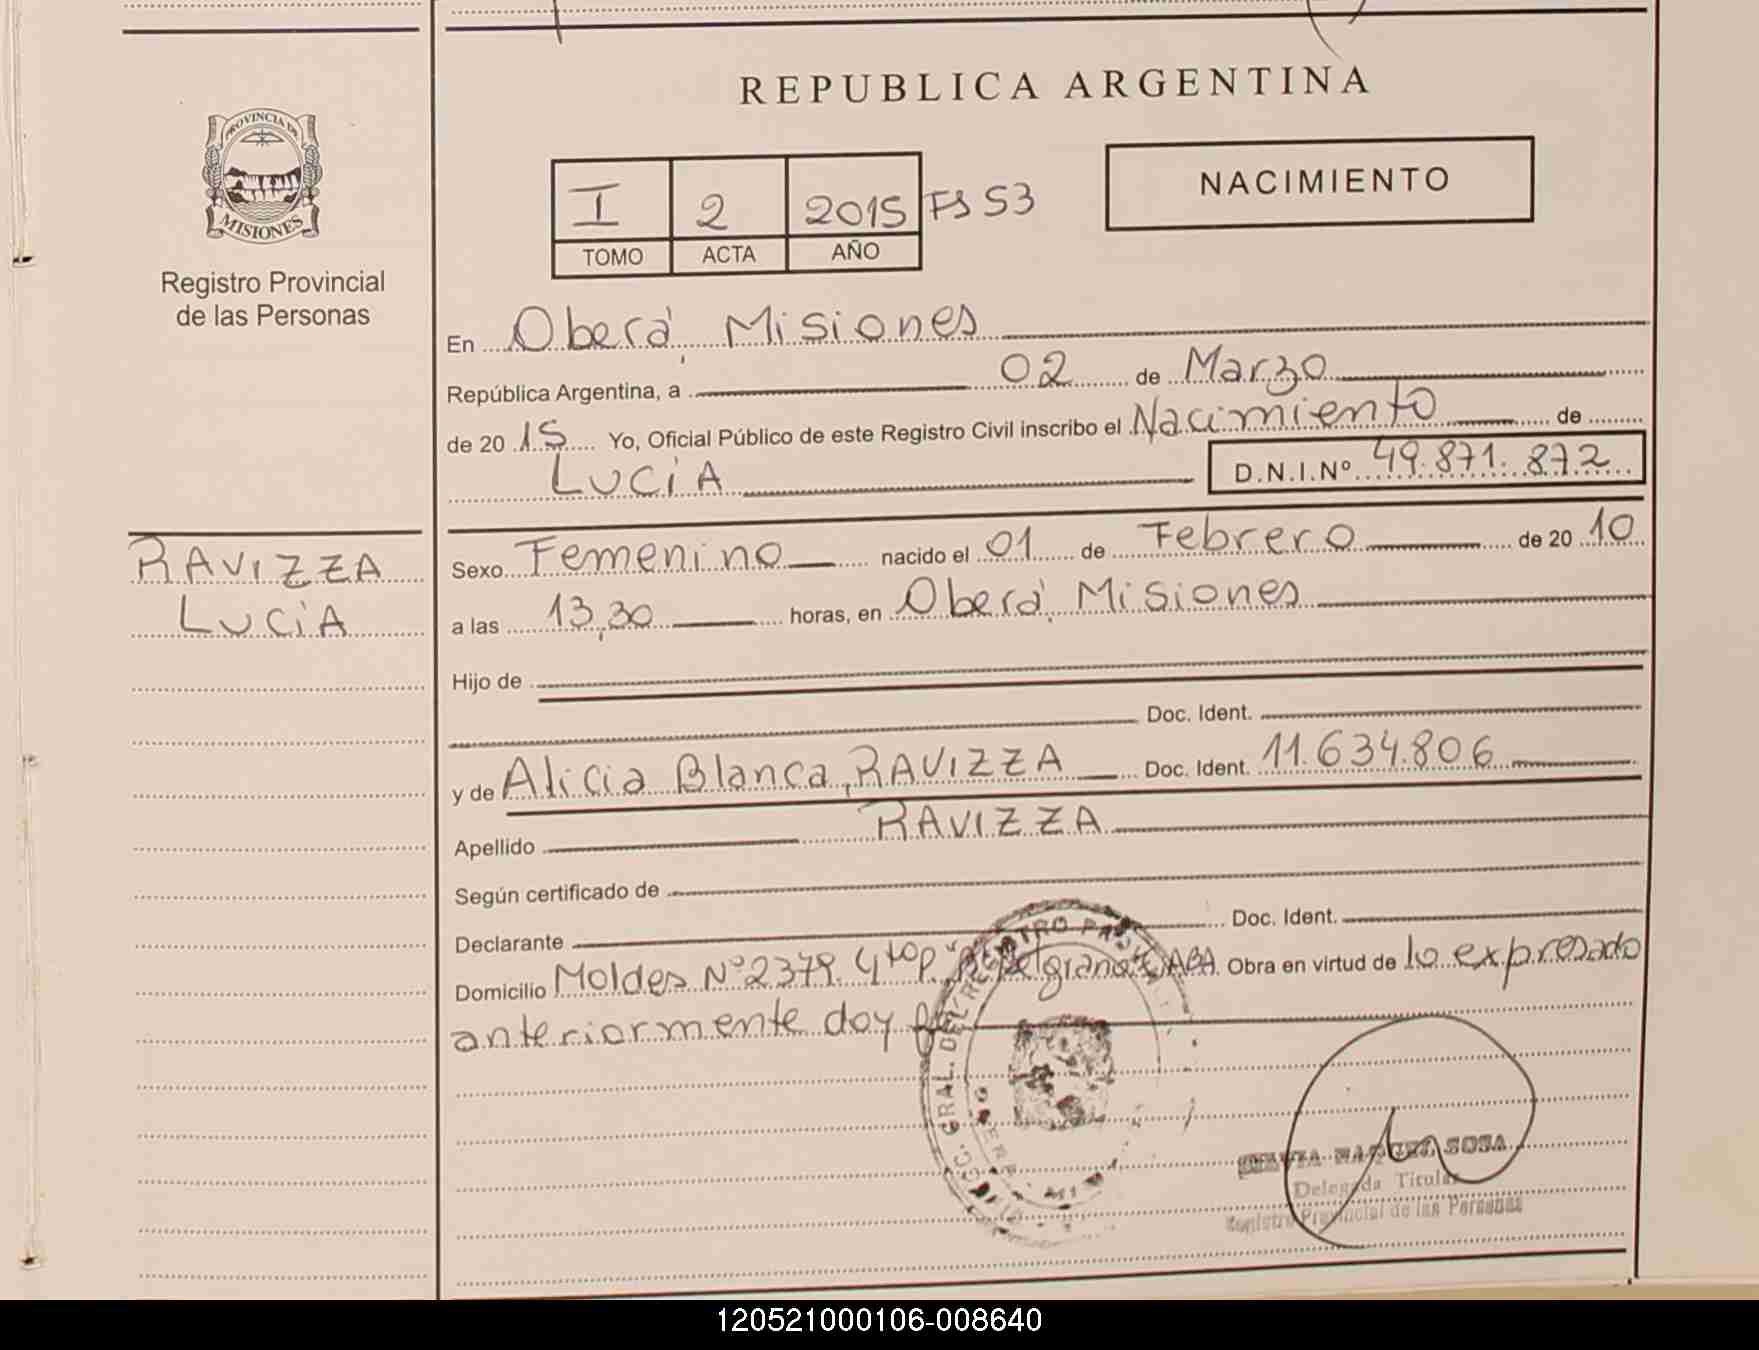 REPUBLICA ARGENTINA
PROVINCIA DE
MISIONES
Registro Provincial
de las Personas
I 2 2015 FS 53
TOMO ACTA AÑO
NACIMIENTO
En Oberá, Misiones
República Argentina, a 02 de Marzo
de 2015 Yo, Oficial Público de este Registro Civil inscribo el Nacimiento de
LUCíA D.N.I.Nº 49.871.872
RAVIZZA
LUCíA
Sexo Femenino nacido el 01 de Febrero de 2010
a las 13,30 horas, en Oberá, Misiones
Hijo de
Doc. Ident.
y de Alicia Blanca, RAVIZZA Doc. Ident. 11.634.806
Apellido RAVIZZA
Según certificado de
Declarante Doc. Ident.
Domicilio Moldes Nº 2379. 4to P. Belgrano Obra en virtud de lo expresado
anteriormente doy fe
GRAL. DEL REGISTRO
SOSA
Delegada Titular
Registro Provincial de las Personas
120521000106-008640